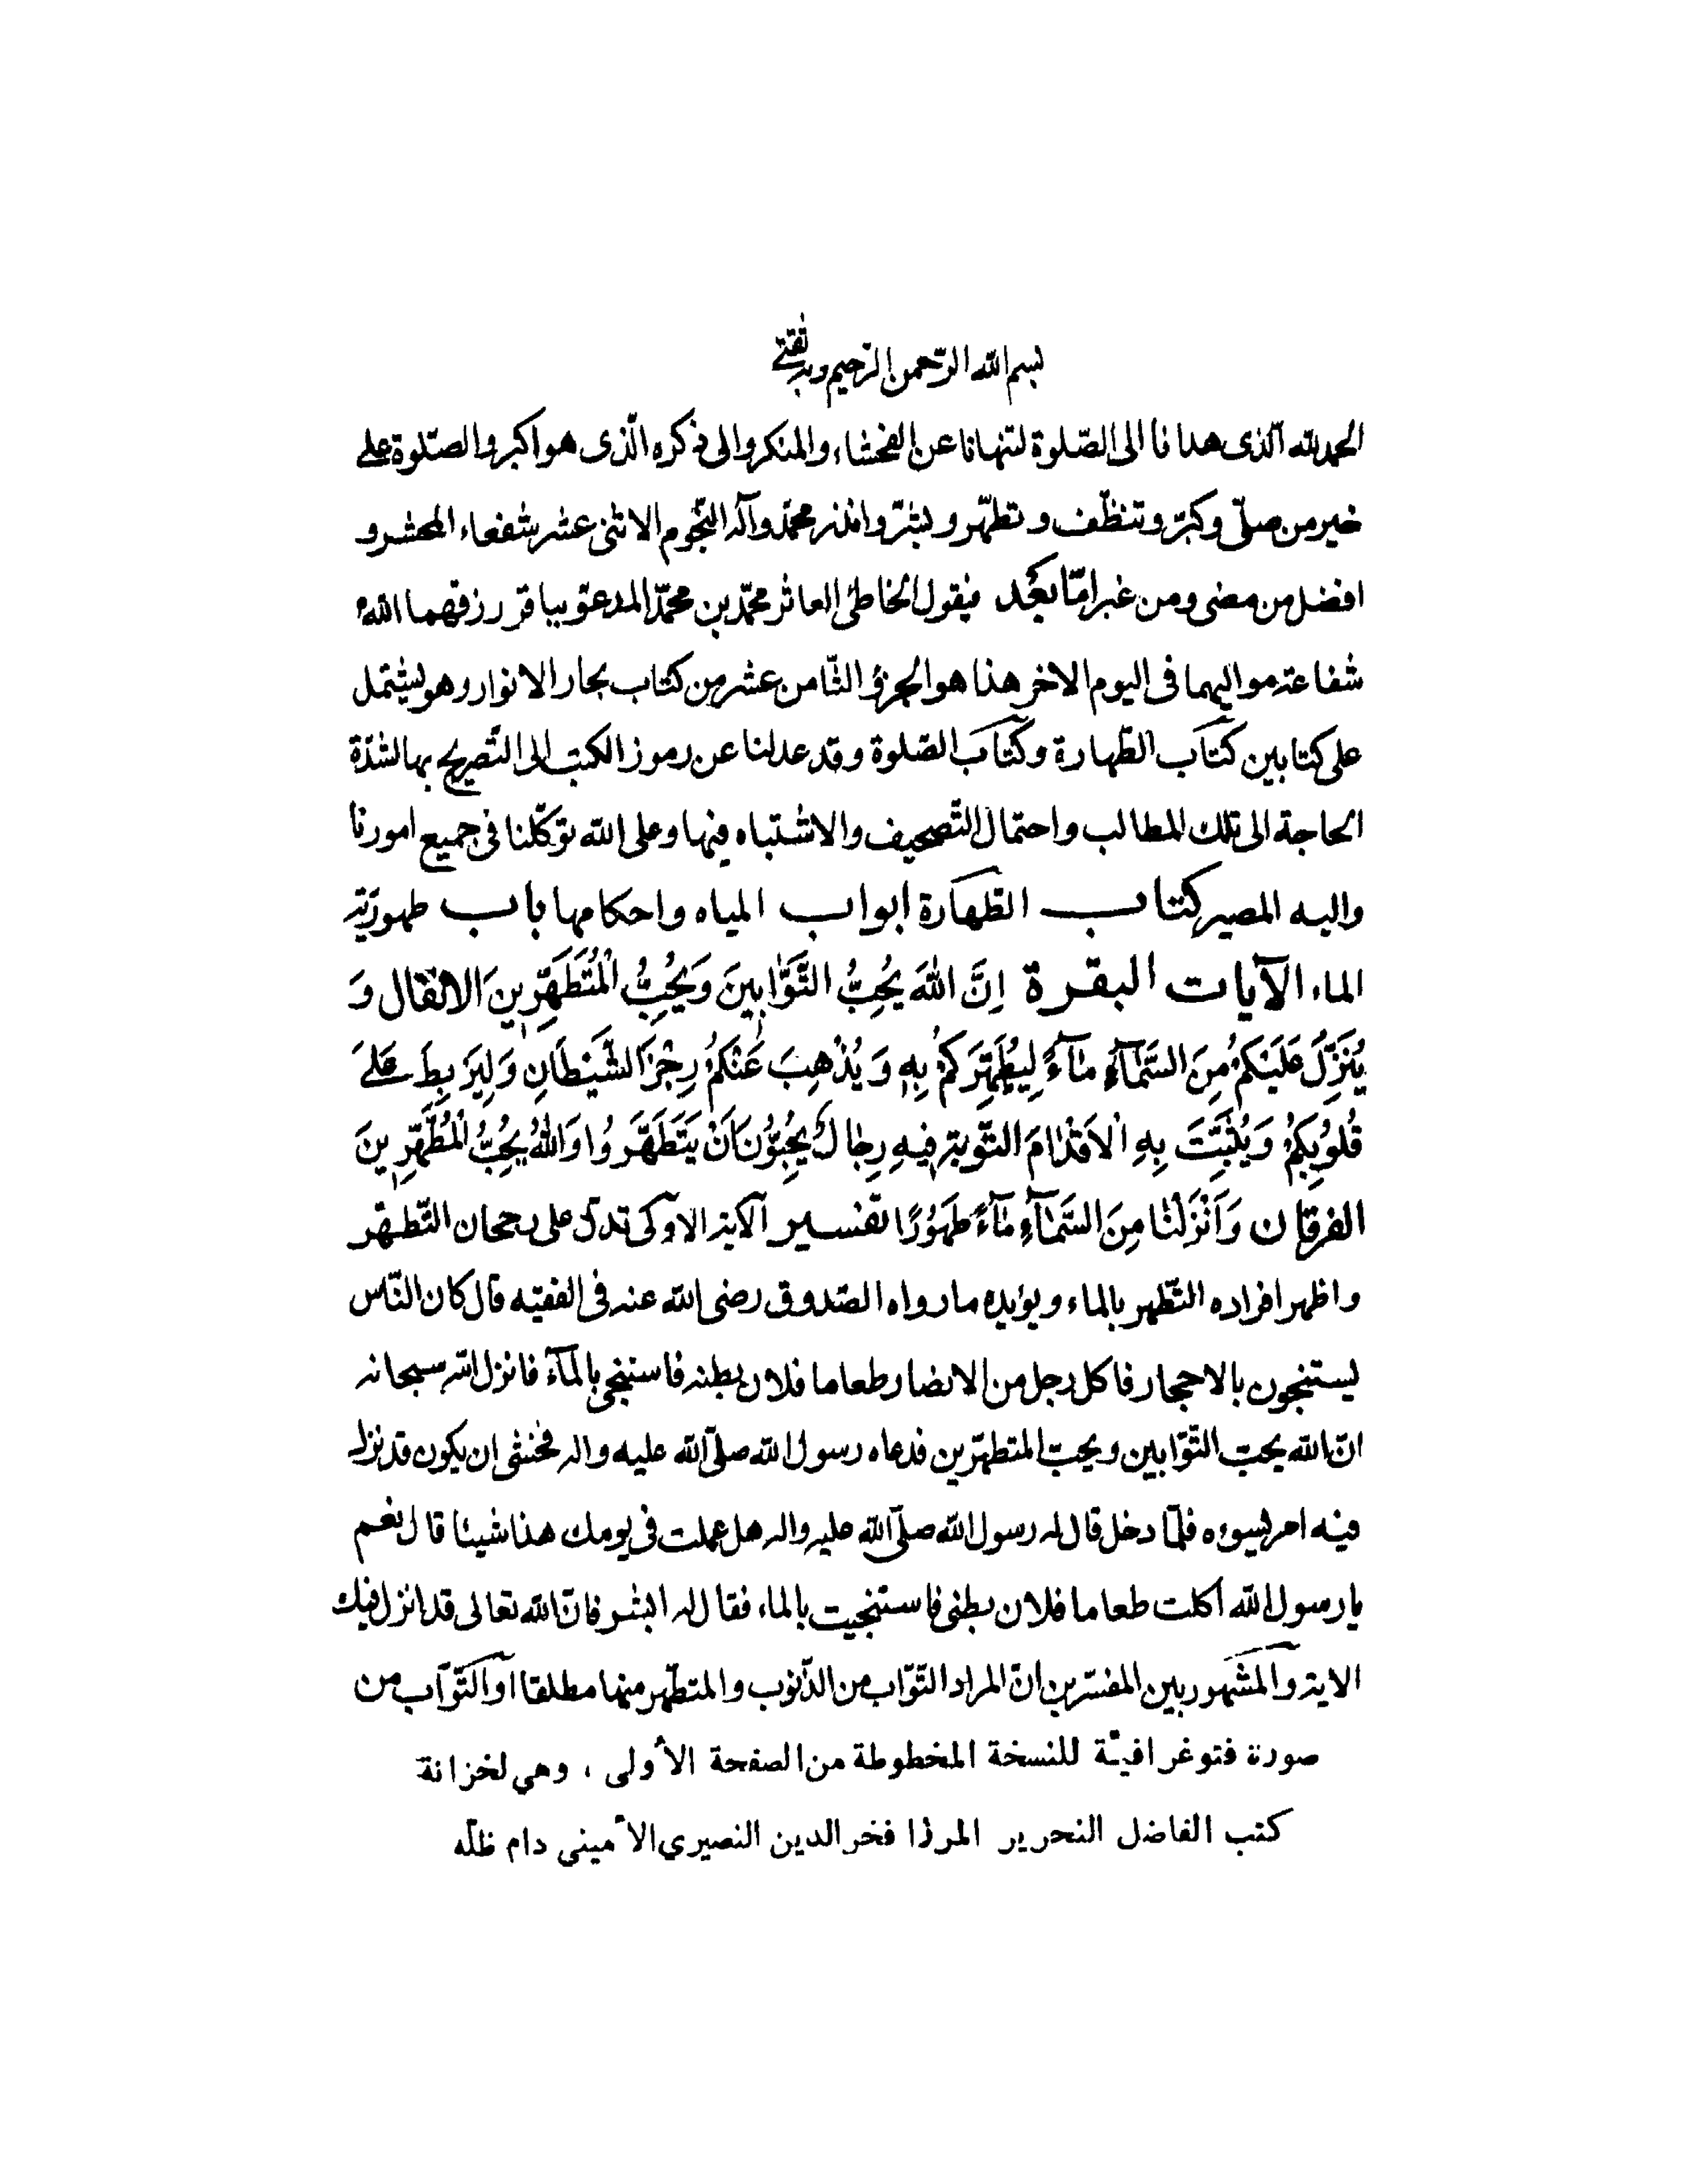 بسم الله الرّحمن الرّحيم وبه ثقتي
الحمد لله الّذى هدانا الى الصّلوة لتنهانا عن الفحشاء والمنكر والى ذكره الّذى هو اكبر والصّلوة على
خير من صلّى وكبّر وتنظّف وتطهّر وبشّر وانذر محمّد وآله النّجوم الاثنى عشر شفعاء المحشر و
افضل من مضى ومن غبر امّا بَعُد فيقول الخاطئ العاثر محمّد بن محمّد المدعوّ بباقر رزقهما اللهُ
شفاعة مواليهما فى اليوم الاخر هذا هو الجزؤ الثّامن عشر من كتاب بحار الانوار وهو يشتمل
على كتابين كتاب الطّهارة وكتاب الصّلوة وقد عدلنا عن رموز الكتب الى التّصريح بها لشدّة
الحاجة الى تلك المطالب واحتمال التّصحيف والاشتباه فيها وعلى الله توكّلنا فى جميع امورنا
واليه المصير كتاب الطّهارة ابواب المياه واحكامها باب طهوريّة
الماء الآيات البقرة اِنَّ اللهَ يُحِبُّ التَّوَّابِينَ وَيُحِبُّ الْمُتَطَهِّرِينَ الانفال وَ
يُنَزِّلُ عَلَيْكُمْ مِنَ السَّمَآءِ مَآءً لِيُطَهِّرَكُمْ بِهِ وَيُذْهِبَ عَنْكُمْ رِجْزَ الشَّيْطَانِ وَلِيَرْبِطَ عَلَىٰ
قُلُوبِكُمْ وَيُثَبِّتَ بِهِ الْاَقْدَامَ التّوبة فِيهِ رِجَالٌ يُحِبُّونَ اَنْ يَتَطَهَّرُوا وَاللهُ يُحِبُّ الْمُطَّهِّرِينَ
الفرقان وَاَنْزَلْنَا مِنَ السَّمَآءِ مَآءً طَهُورًا تفسير الآية الاولى تدلّ على رجحان التّطهّر
واظهر افراده التّطهر بالماء ويؤيده ما رواه الصّدوق رضى الله عنه فى الفقيه قال كان النّاس
يستنجون بالاحجار فاكل رجل من الانصار طعاما فلان بطنه فاستنجى بالمآء فانزل الله سبحانه
انّ الله يحبّ التّوّابين ويحبّ المتطهّرين فدعاه رسول الله صلّى الله عليه واله فخشى ان يكون قد نزل
فيه امر يسوءه فلمّا دخل قال له رسول الله صلّى الله عليه واله هل عملت فى يومك هذا شيئا قال نعم
يا رسول الله اكلت طعاما فلان بطنى فاستنجيت بالماء فقال له ابشر فانّ الله تعالى قد انزل فيك
الاية والمشهور بين المفسّرين انّ المراد التّوّاب من الذّنوب والمتطهّر منها مطلقا او التّوّاب من
صورة فتوغرافيّة للنسخة المخطوطة من الصفحة الأولى ، وهي لخزانة
كتب الفاضل النحرير المرزا فخر الدين النصيري الأميني دام ظلّه